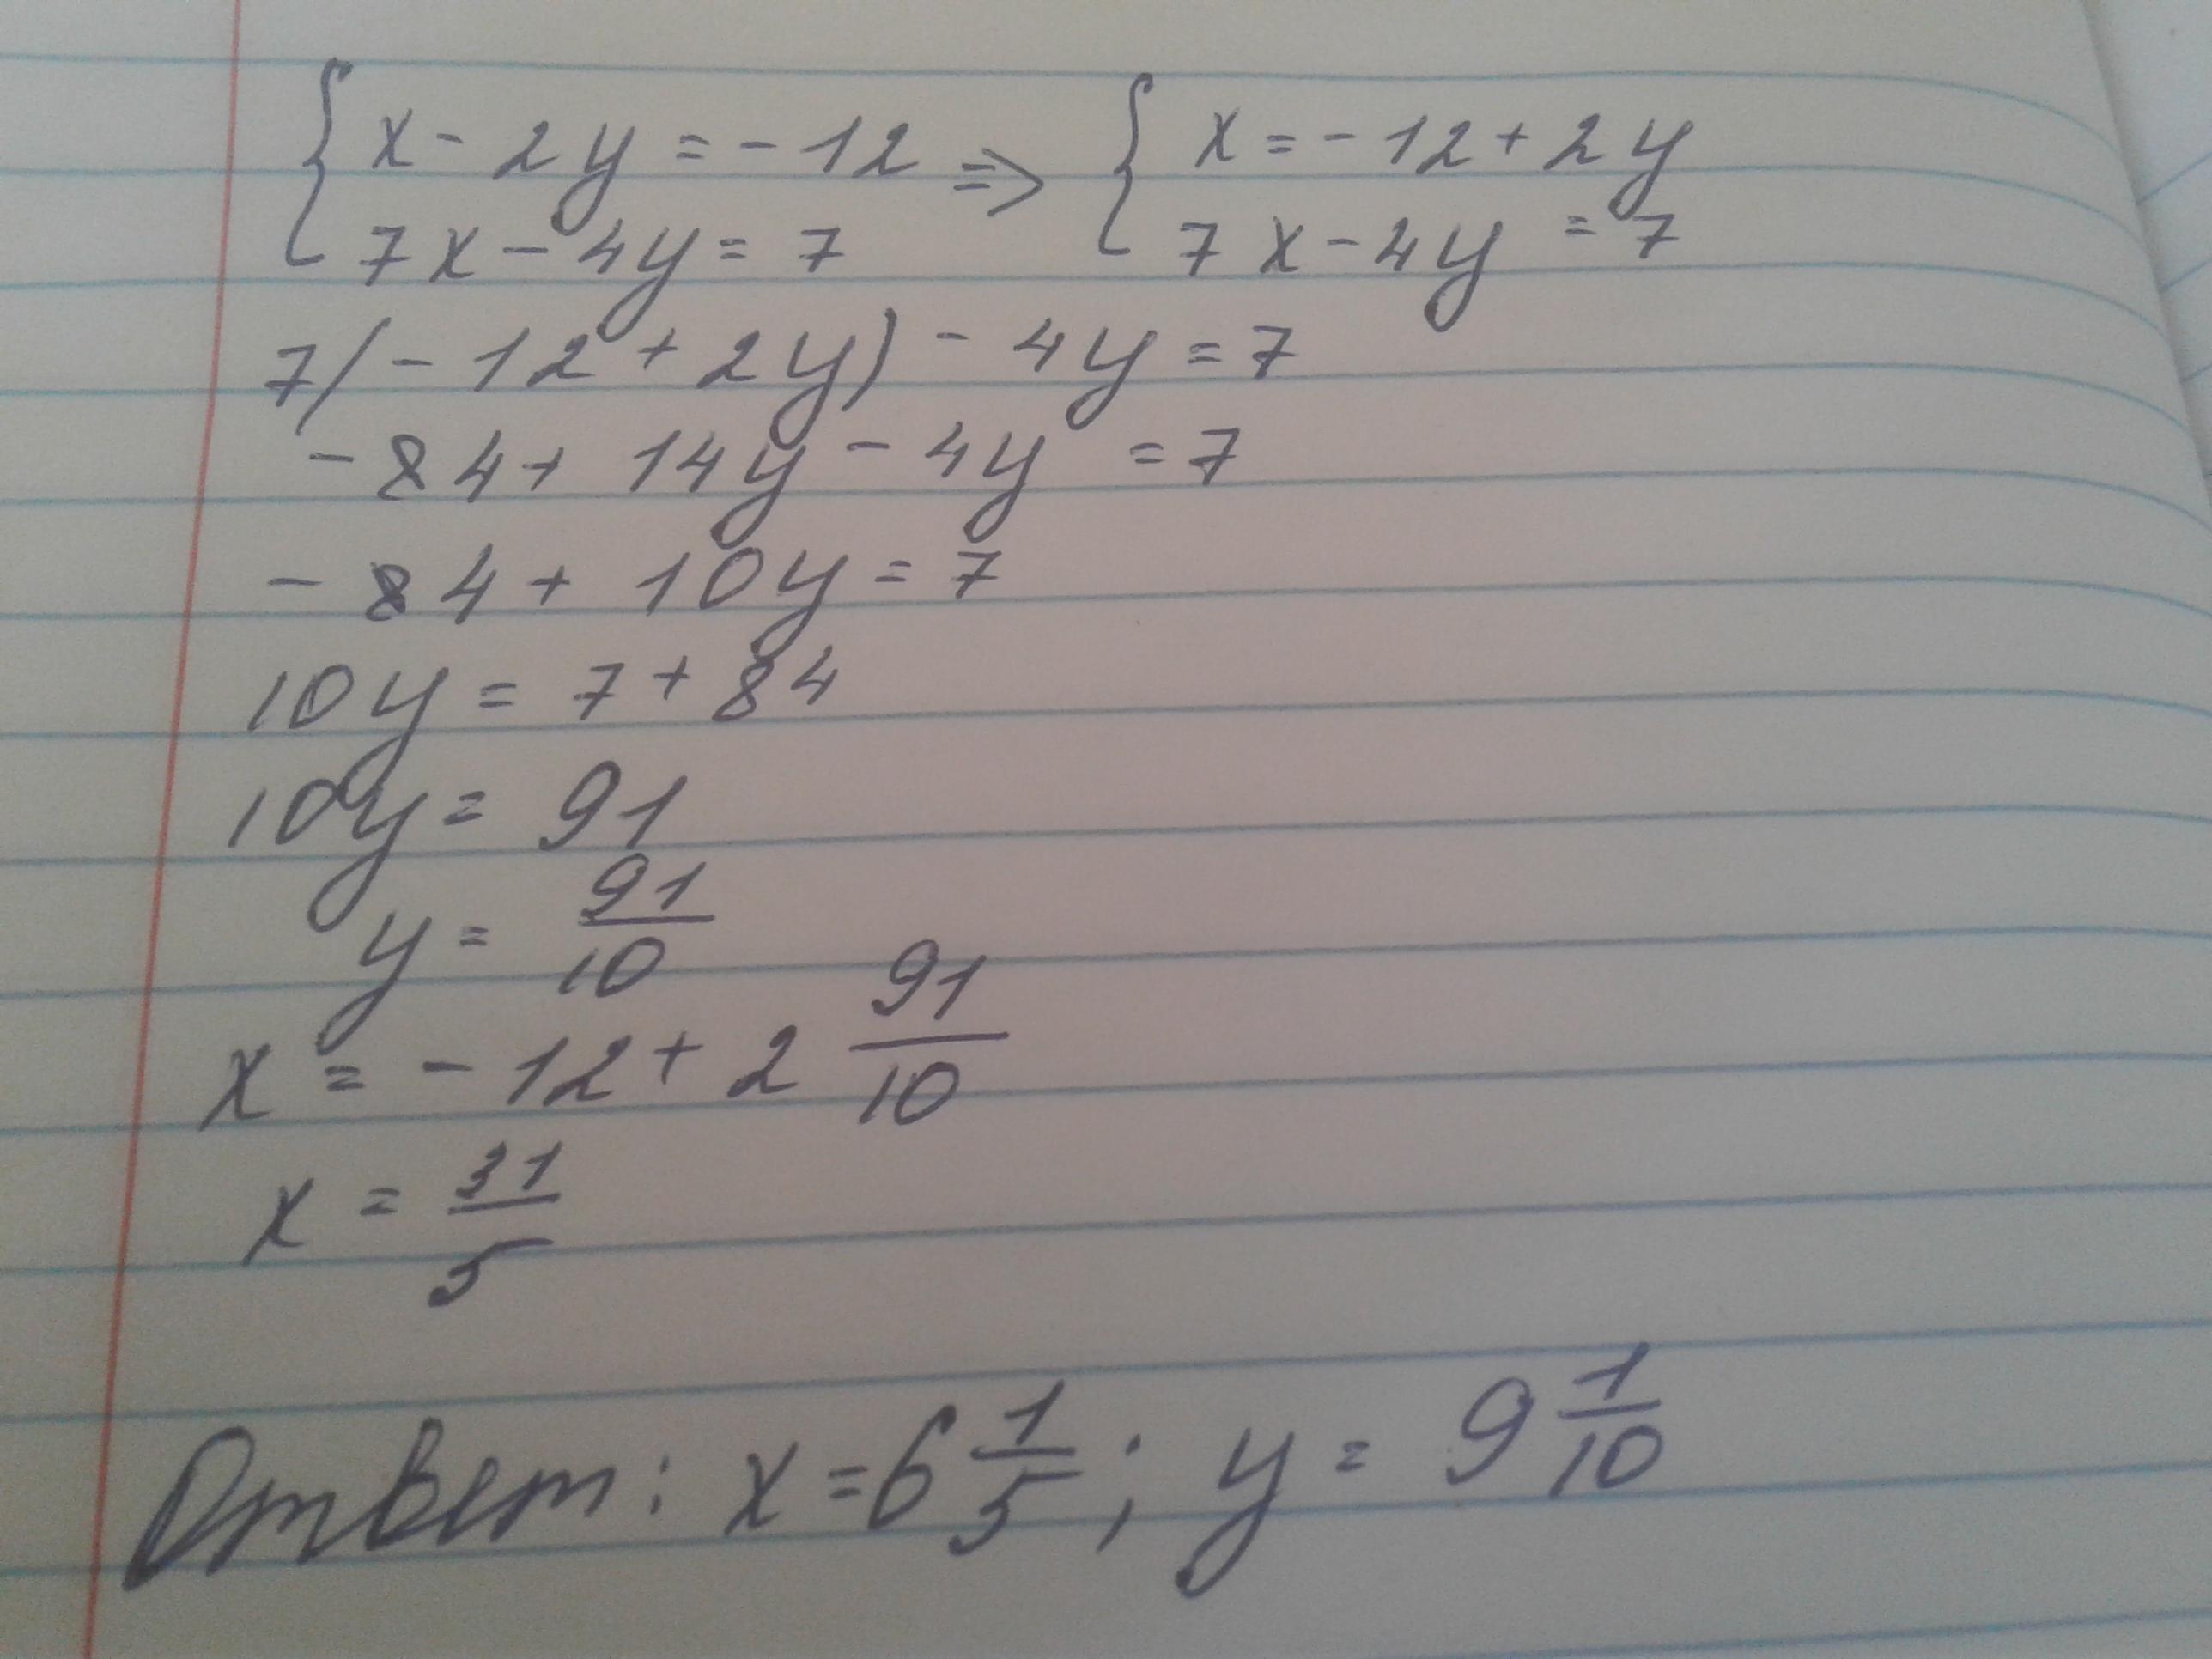 { x - 2y = -12 => { x = -12 + 2y
7x - 4y = 7 7x - 4y = 7
7(-12 + 2y) - 4y = 7
-84 + 14y - 4y = 7
-84 + 10y = 7
10y = 7 + 84
10y = 91
y = 91/10
x = -12 + 2 91/10
x = 31/5
Ответ: x = 6 1/5; y = 9 1/10